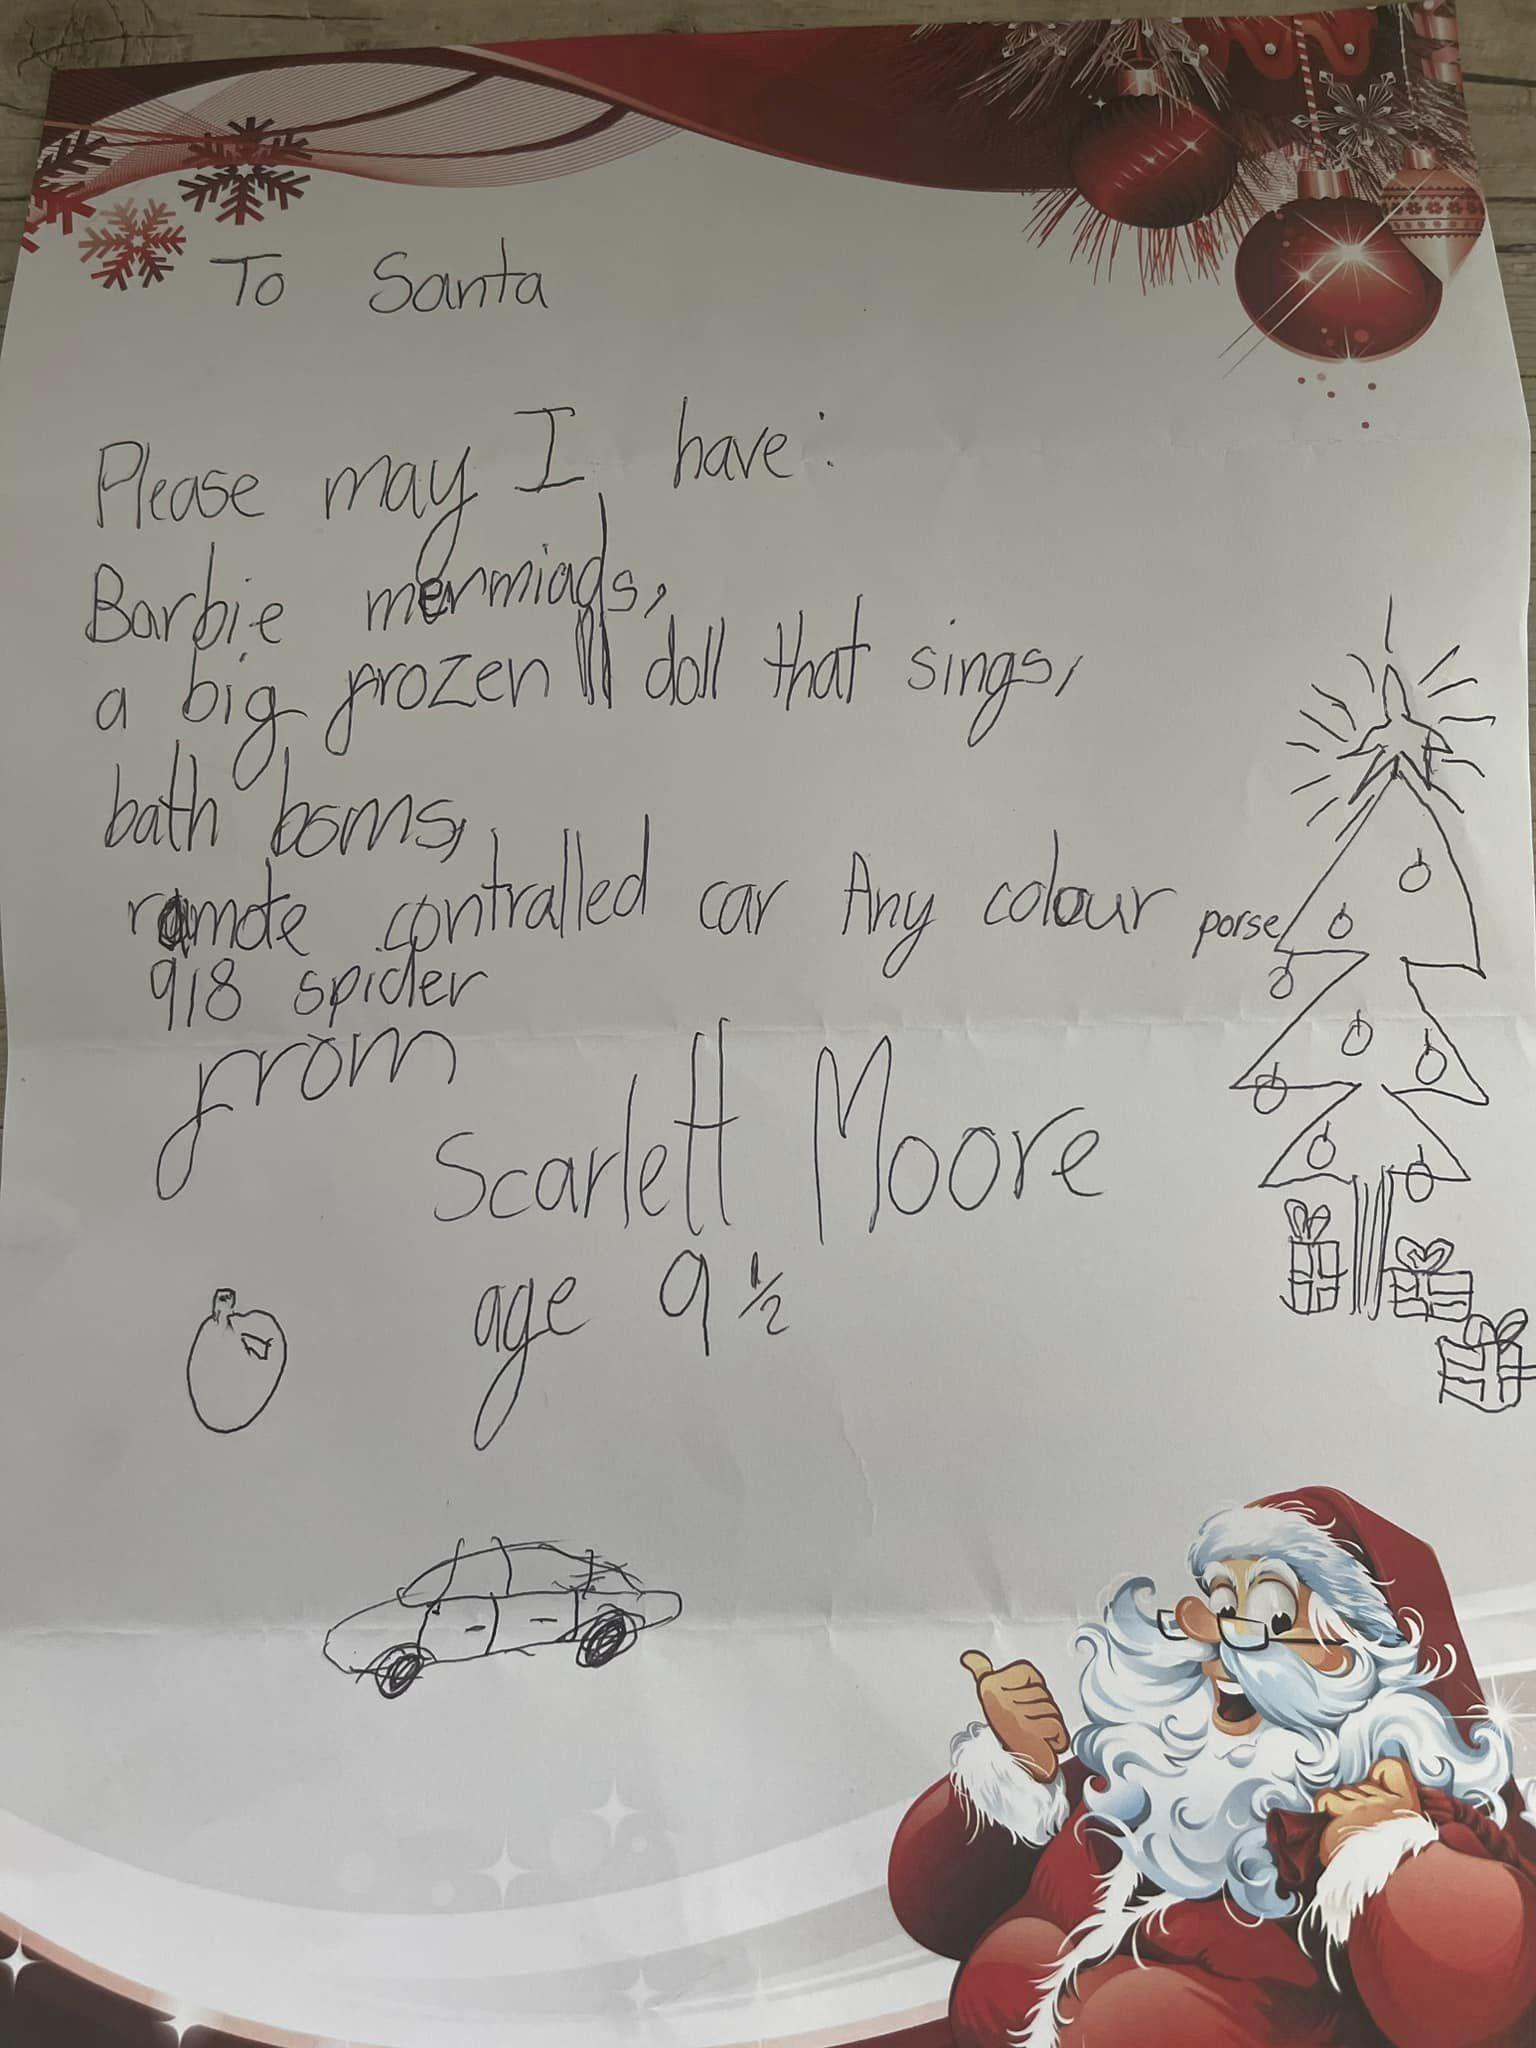 To Santa
Please may I have:
Barbie mermiads,
a big frozen doll that sings,
bath boms,
ramote contralled car Any colour porse
918 spider
from
Scarlett Moore
age 9 ½